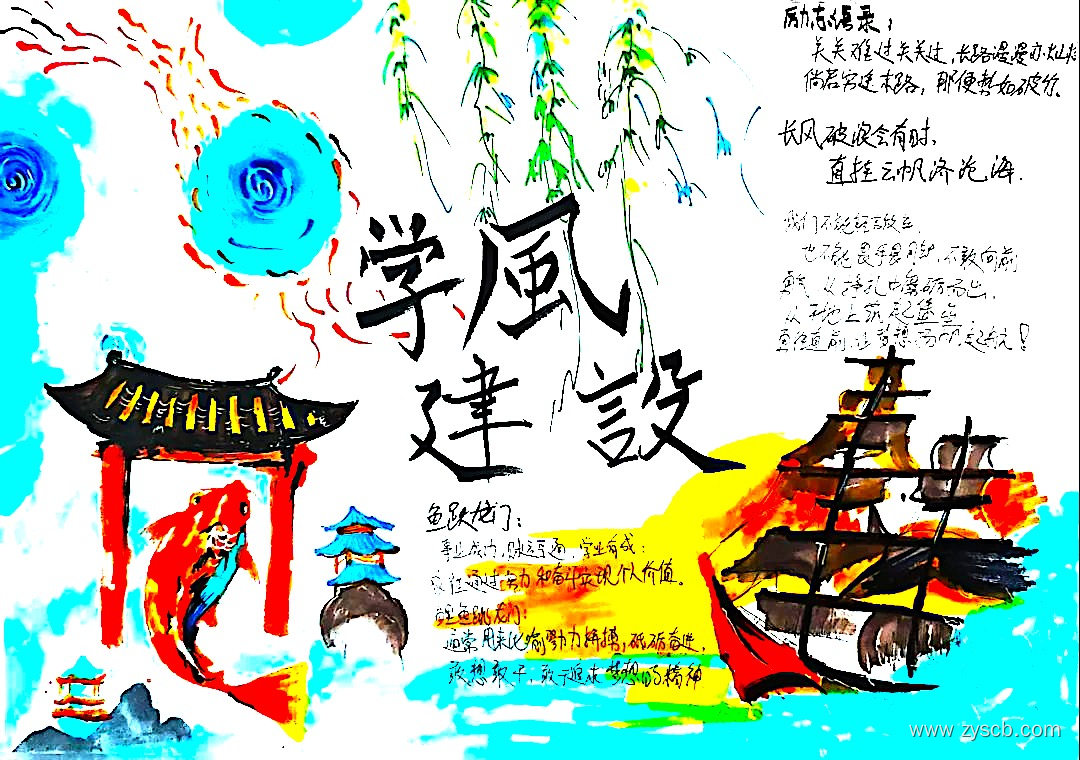 学風
建設
励志语录：
关关难过关关过，长路漫漫亦灿灿
倘若穷途末路，那便势如破竹。
长风破浪会有时，
直挂云帆济沧海.
我们不能轻言放弃，
也不能畏手畏脚，不敢向前
从挣扎中磨砺而出，
从平地上筑起堡垒，
直前，让梦想扬帆起航！
鱼跃龙门：
事业成功，财运亨通，学业有成：
通过努力和奋斗实现个人价值。
鲤鱼跳龙门：
通常用来比喻努力拼搏，砥砺奋进，
敢想敢干，敢于追求梦想的精神
www.zyscb.com